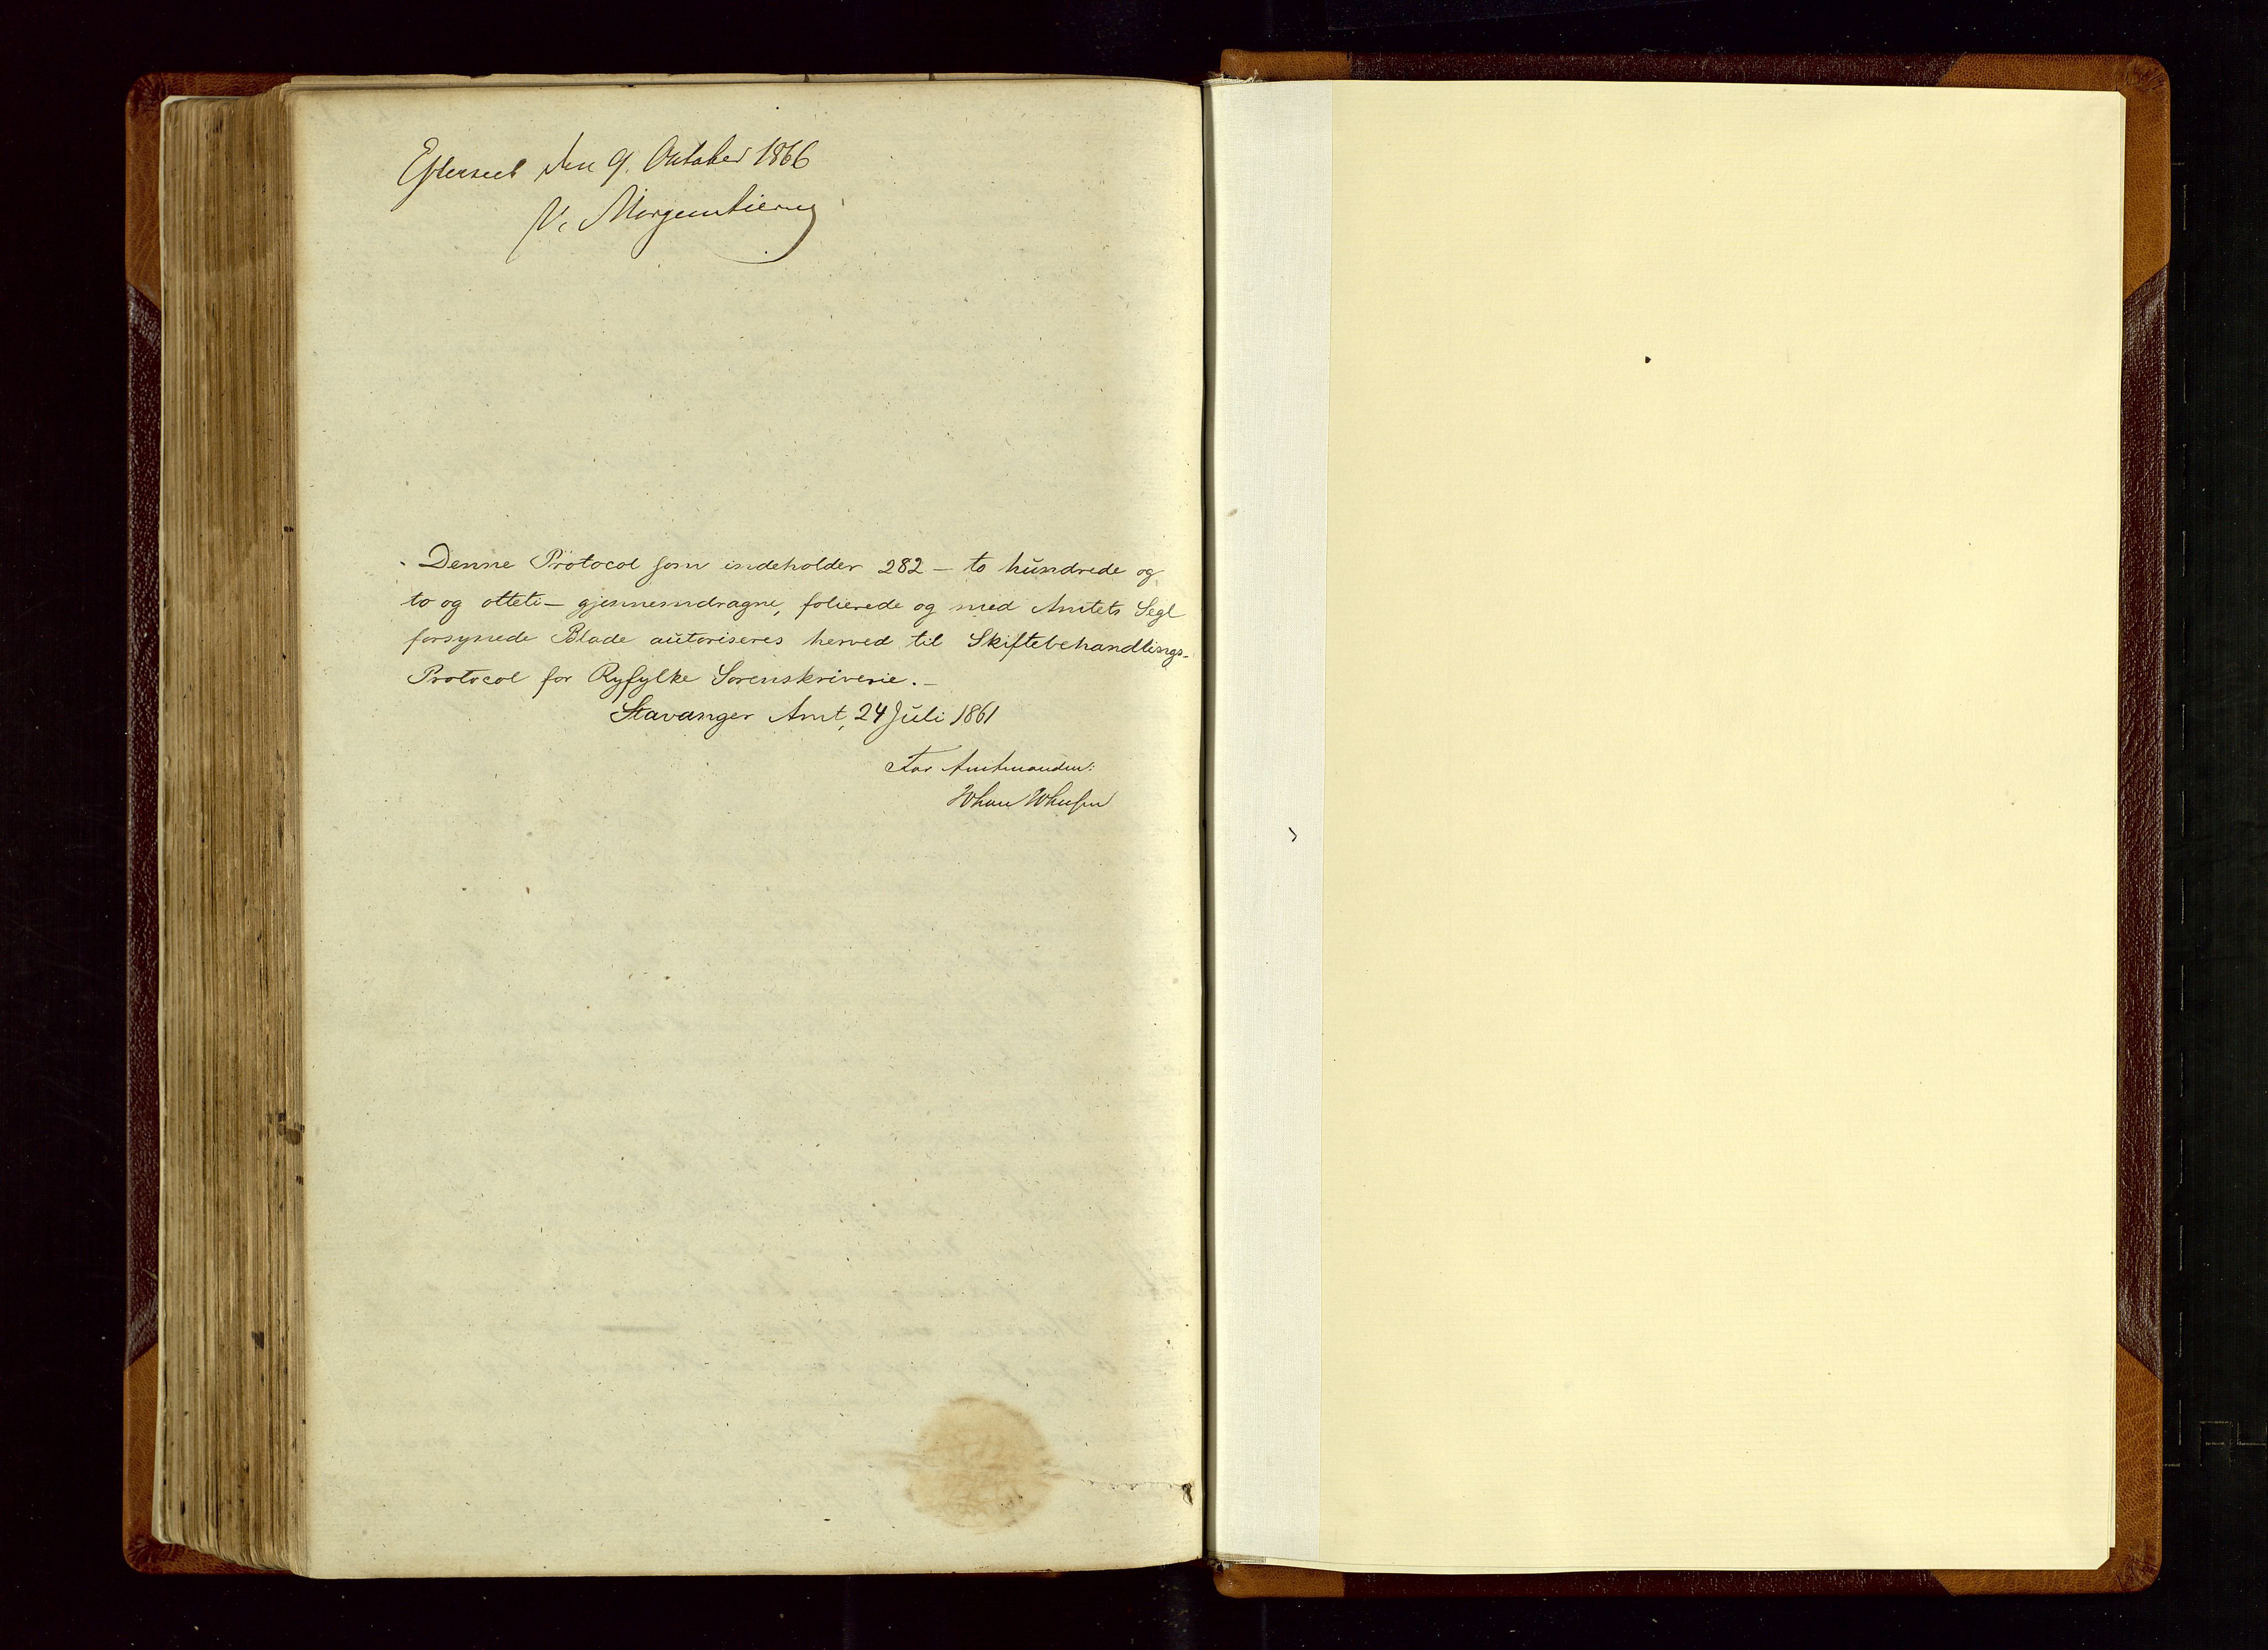 Efterseet den 9. October 1866
V. Morgenstierne
Denne Protocol som indeholder 282 – to hundrede og
to og otteti – gjennemdragne, folierede og med Amtets Segl
forsynede Blade autoriseres herved til Skiftebehandlings-
Protocol for Ryfylke Sorenskriverie. –
Stavanger Amt, 24 Juli 1861
For Amtmanden: